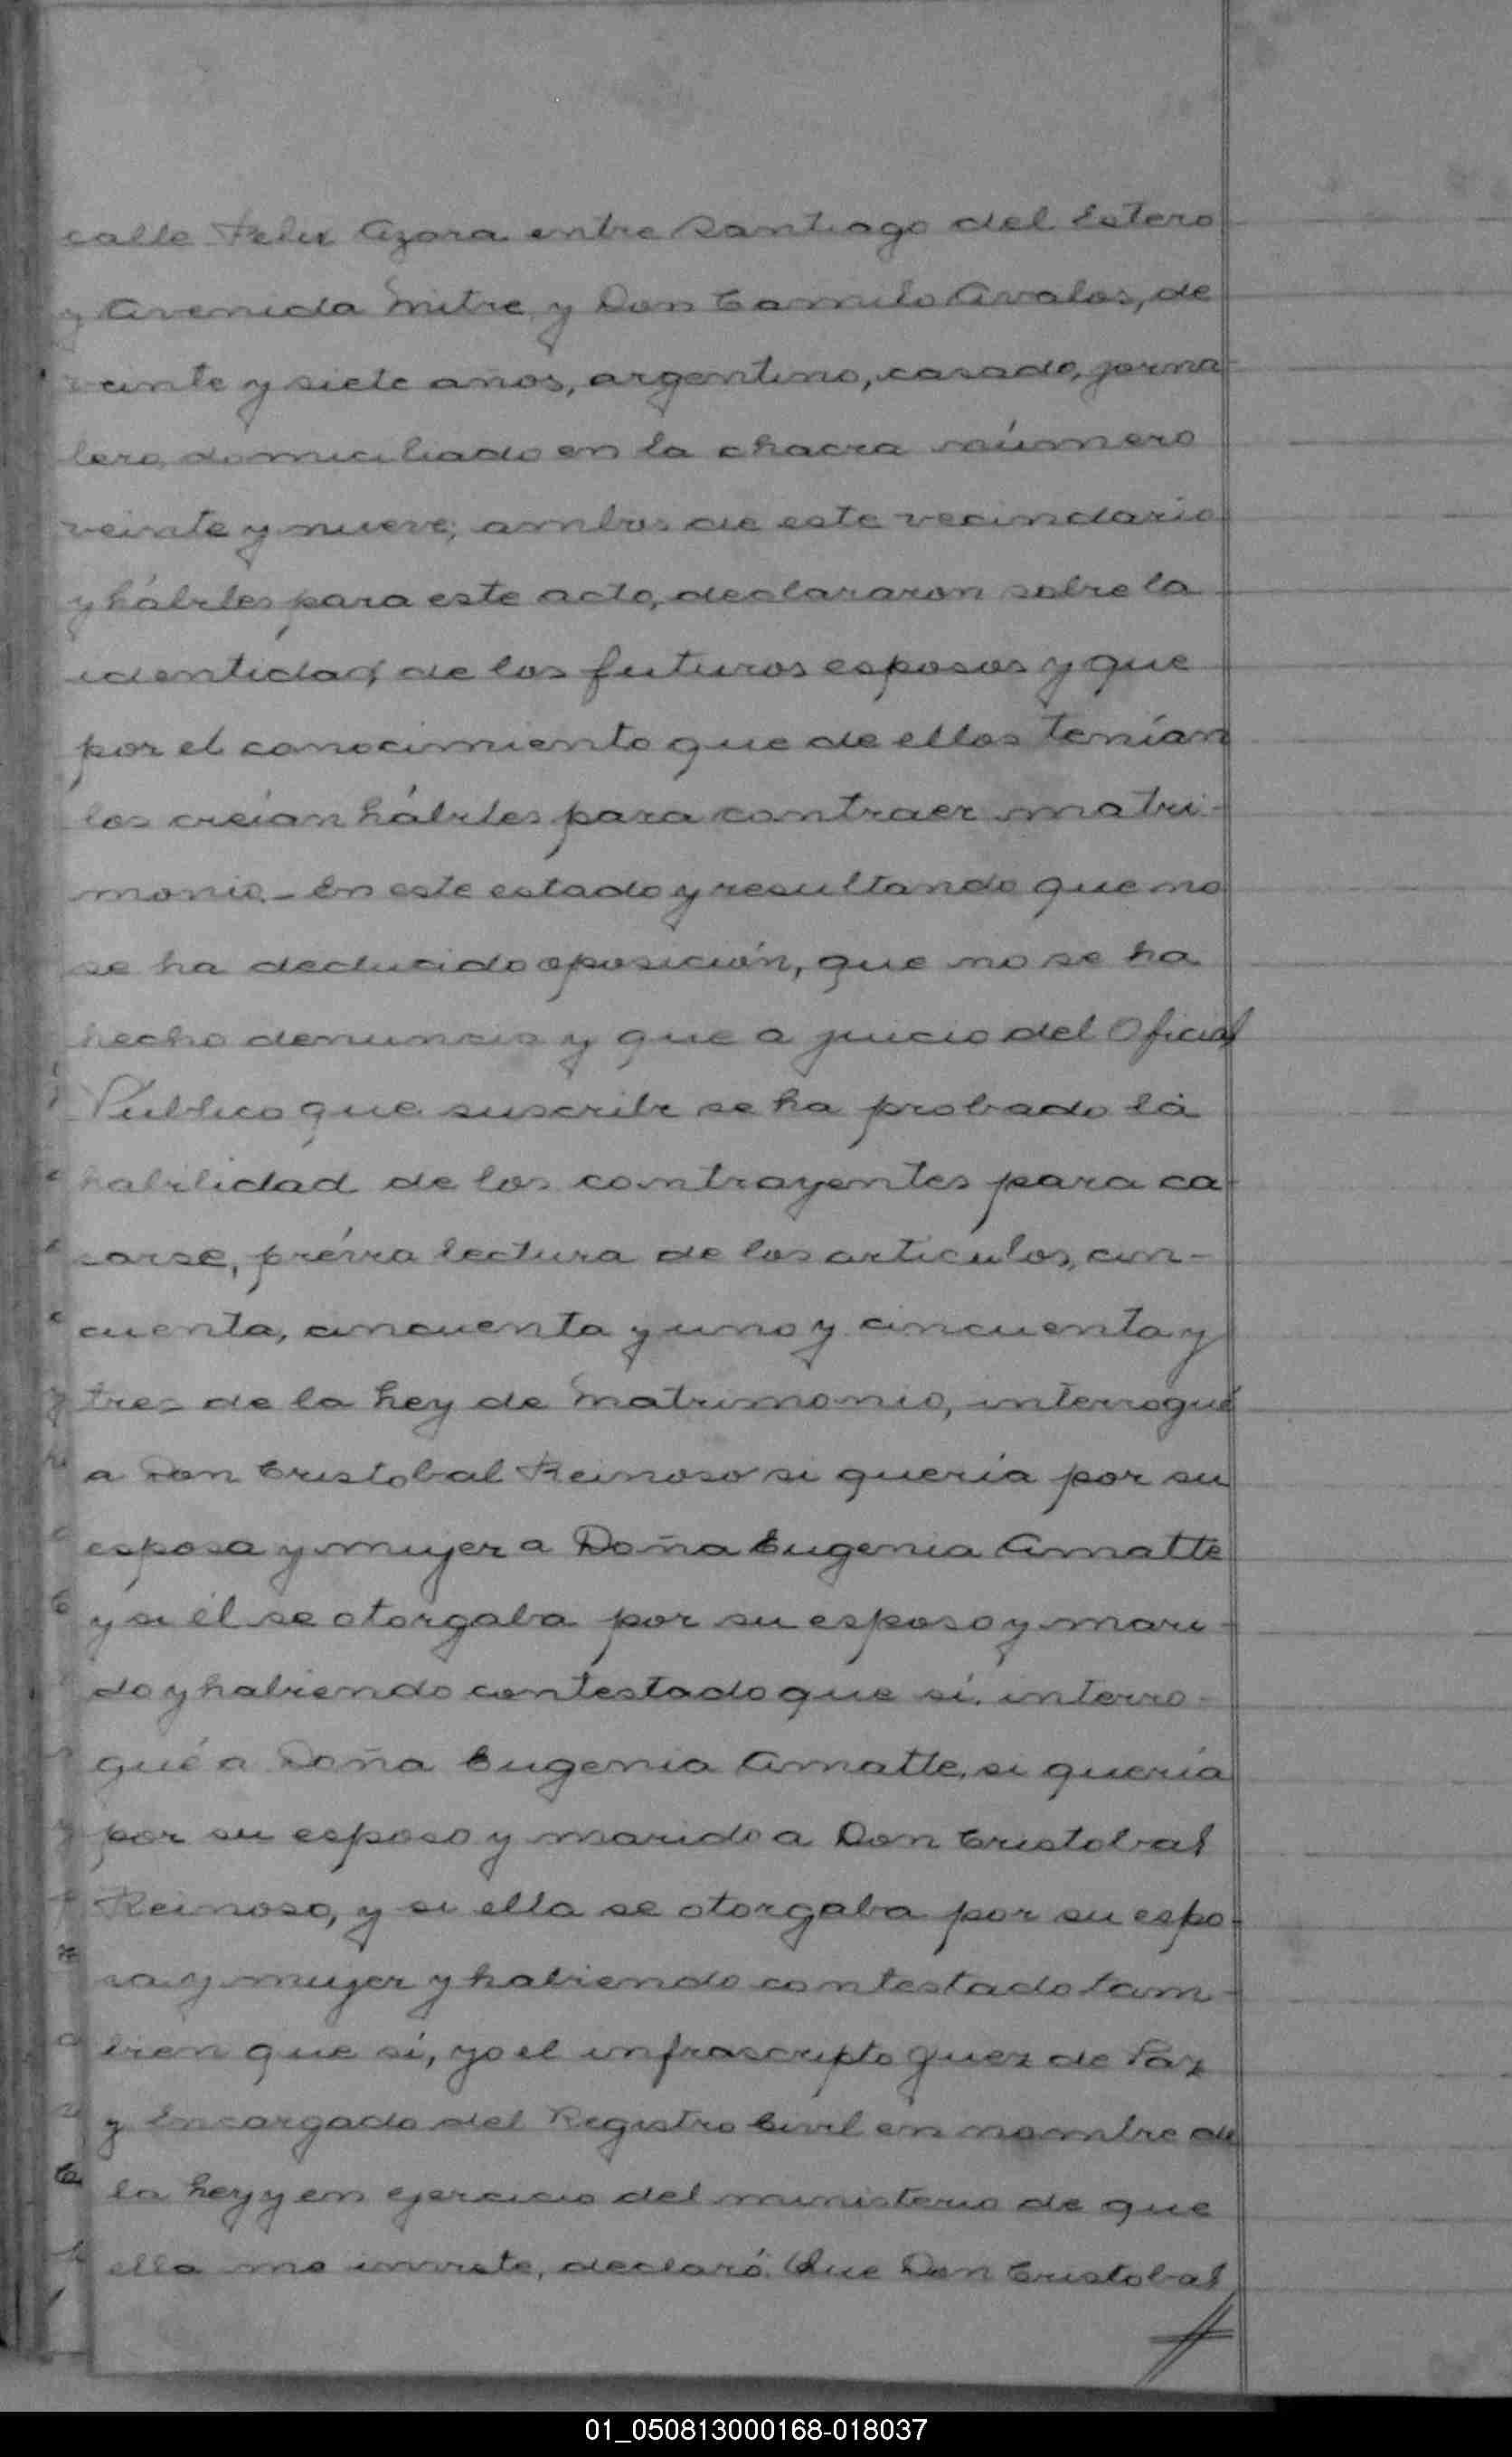 calle Felix Azara entre Santiago del Estero
y Avenida Mitre y Don Camilo Avalos, de
veinte y siete años, argentino, casado, jorna-
lero, domiciliado en la chacra número
veinte y nueve; ambos de este vecindario
y hábiles para este acto, declararon sobre la
identidad de los futuros esposos y que
por el conocimiento que de ellos tenían
los creían hábiles para contraer matri-
monio.- En este estado y resultando que no
se ha deducido oposición, que no se ha
hecho denuncia y que a juicio del Oficial
Público que suscribe se ha probado la
habilidad de los contrayentes para ca-
sarse, prévia lectura de los artículos, cin-
cuenta, cincuenta y uno y cincuenta y
tres de la Ley de Matrimonio, interrogué
a Don Cristobal Reinoso si quería por su
esposa y mujer a Doña Eugenia Amatte
y si él se otorgaba por su esposo y mari-
do y habiendo contestado que sí, interro-
gué a Doña Eugenia Amatte, si quería
por su esposo y marido a Don Cristobal
Reinoso, y si ella se otorgaba por su espo-
sa y mujer y habiendo contestado tam-
bien que sí, yo el infrascripto Juez de Paz
y Encargado del Registro Civil en nombre de
la Ley y en ejercicio del ministerio de que
ella me inviste, declaró: Que Don Cristobal
01_050813000168-018037